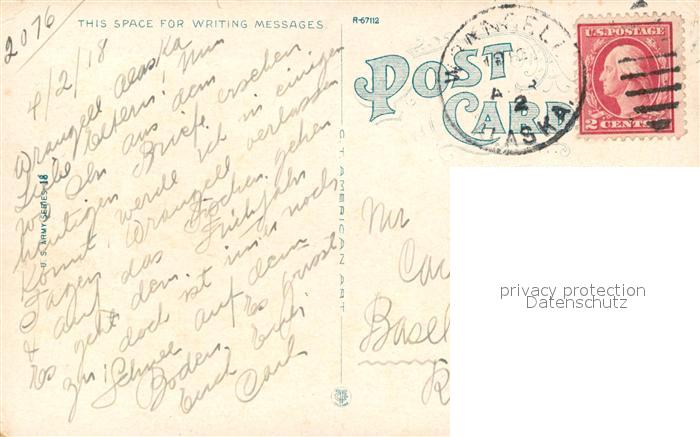 2076
THIS SPACE FOR WRITING MESSAGES.
R-67112
POST
CARD
WRANGELL
A 2
ALASKA.
U.S. POSTAGE
2 CENTS 2
4/2/18
Wrangell Alaska
Liebe Eltern! Nun
wie Ihr aus dem
heutigen Briefe ersehen
könnt, werde ich in einigen
Tagen Wrangell verlassen
& auf das Fischen gehen.
Es geht dem Frühjahr
zu, doch ist immer noch
Schnee auf dem
Boden. Es grüsst
Euch Euer
Carl
U. S. ARMY SERIES 18
C T AMERICAN ART
Mr
Basel
privacy protection
Datenschutz